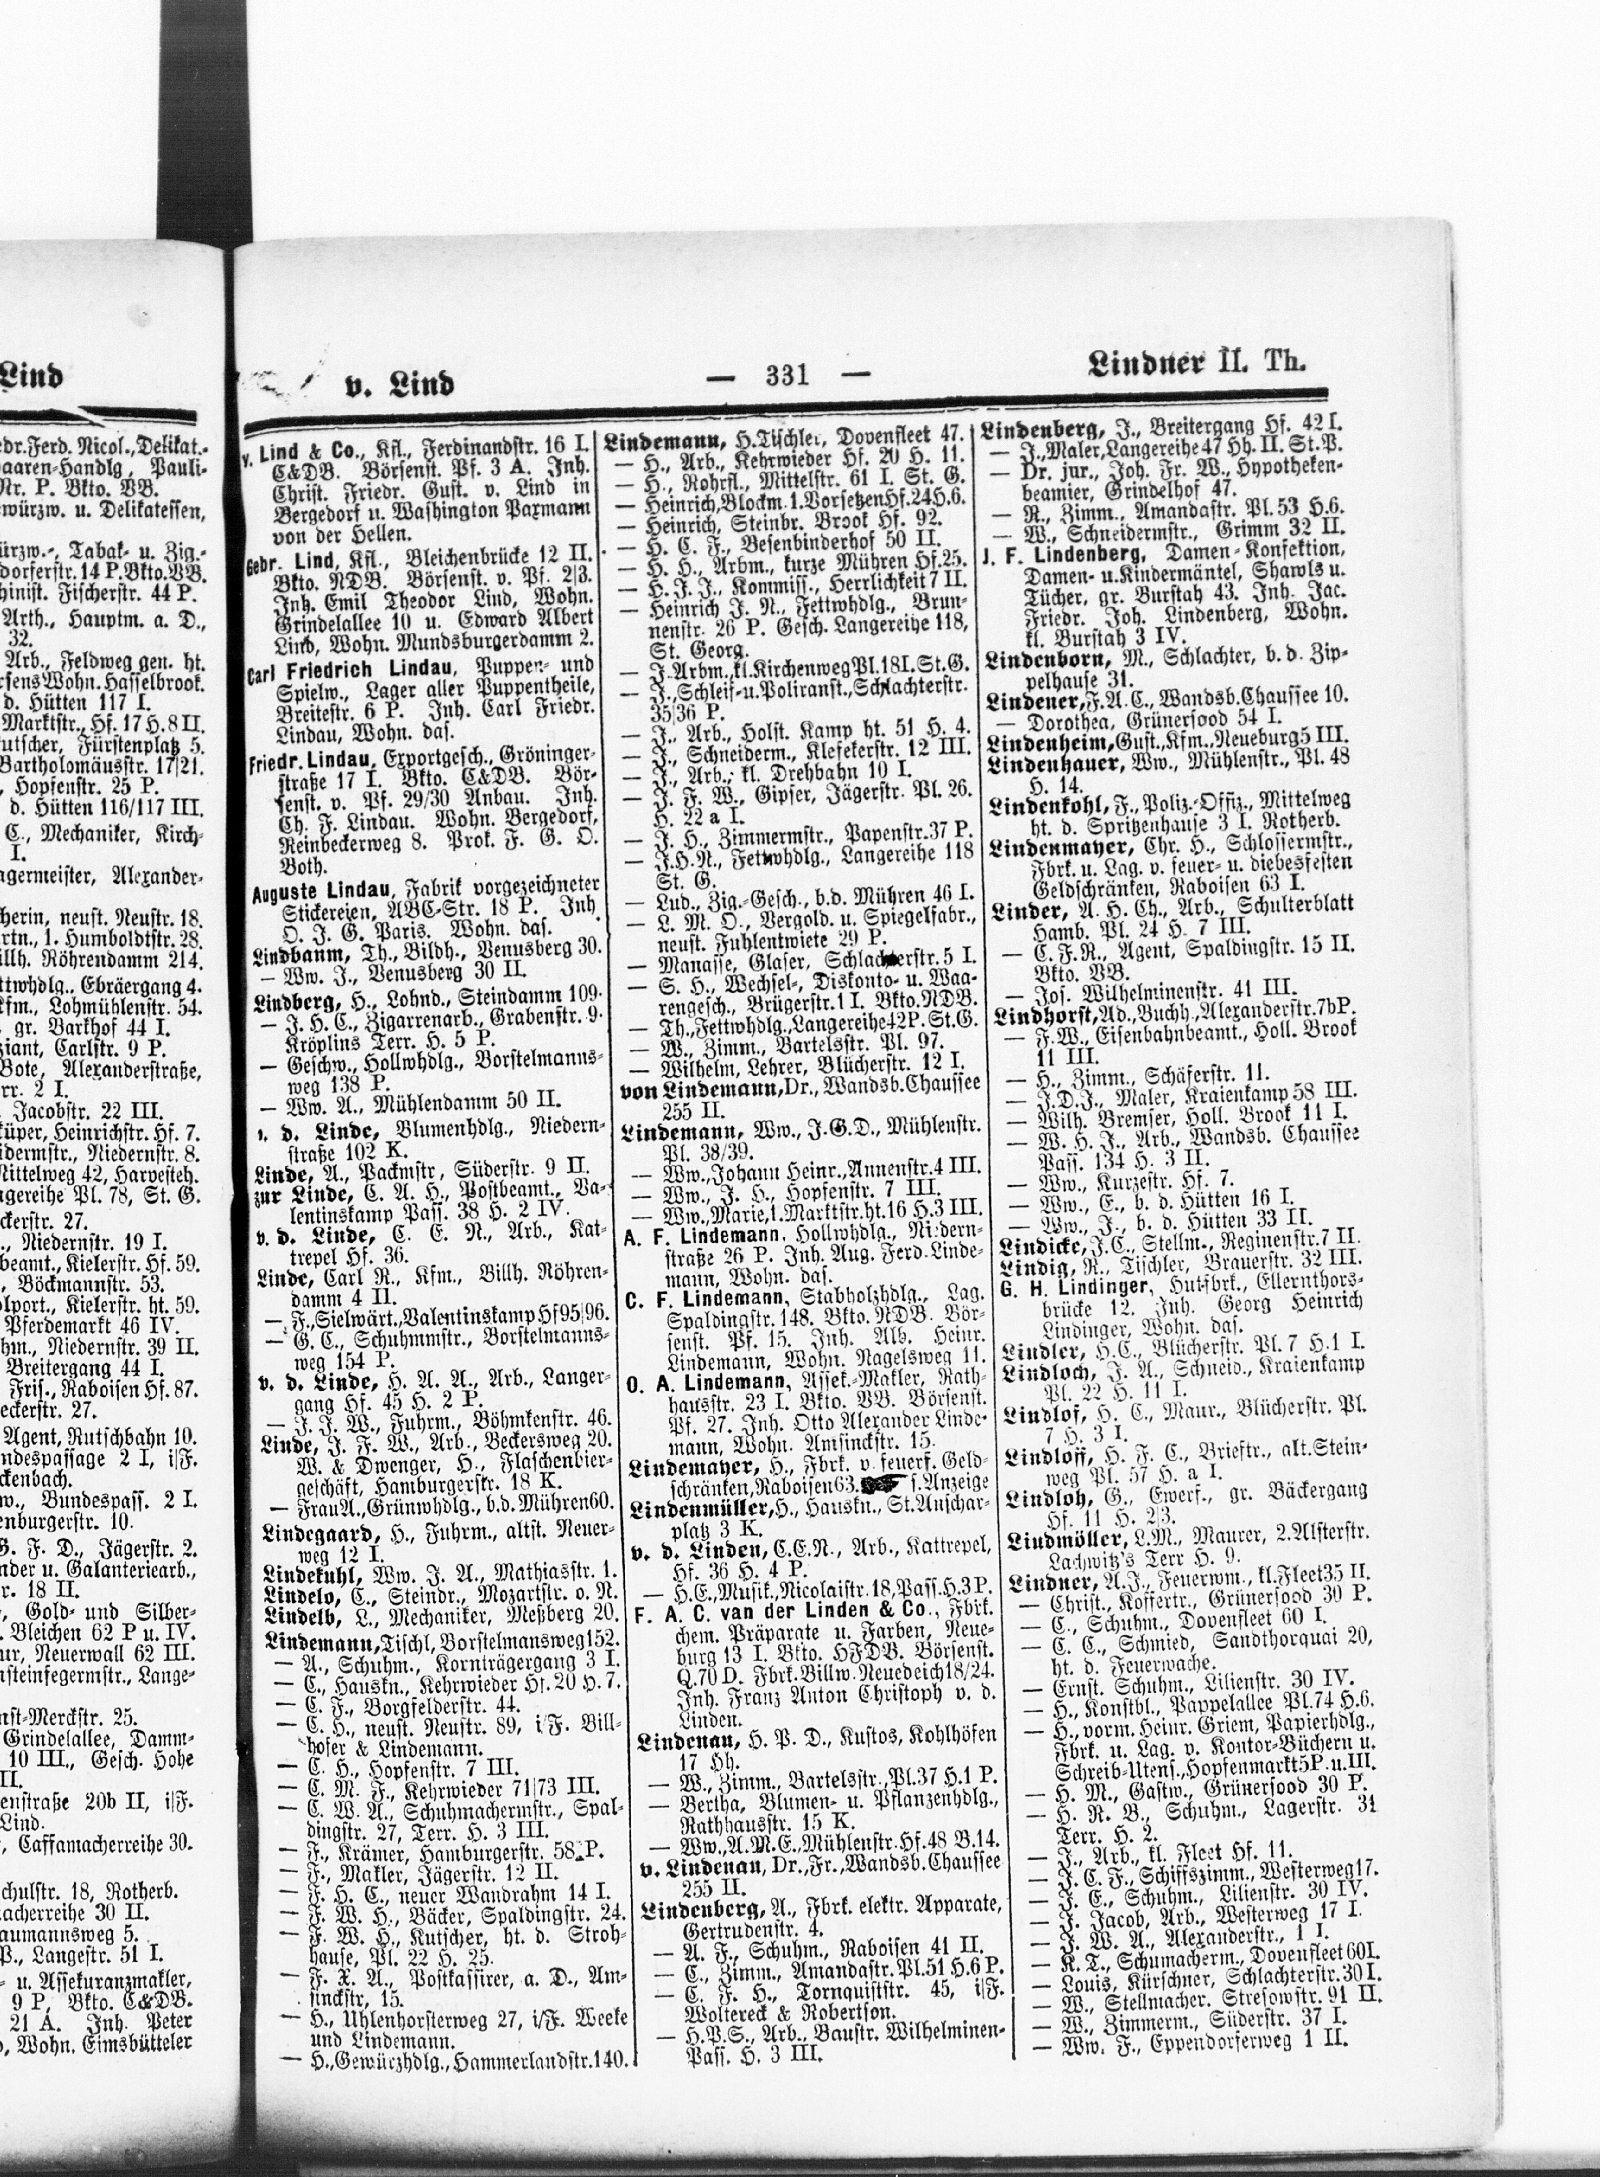 Lind
edr. Ferd. Nicol., Delikat.-
waaren-Handlg, Pauli-
Nr. P. Bkto. VB.
ewürzw. u. Delikatessen,
ürzw.-, Tabak- u. Zig.-
dorferstr. 14 P. Bkto. VB.
hinist. Fischerstr. 44 P.
Arth., Hauptm. a. D.,
32.
Arb., Feldweg gen. ht.
rsens Wohn. Hasselbrook.
d. Hütten 117 I.
Marktstr., Hf. 17 H. 8 II.
utscher, Fürstenplatz 5.
Bartholomäusstr. 17/21.
, Hopfenstr. 25 P.
d. Hütten 116/117 III.
C., Mechaniker, Kirch-
I.
agermeister, Alexander-
herin, neust. Neustr. 18.
rtn., 1. Humboldtstr. 28.
illh. Röhrendamm 214.
ttwhdlg., Ebräergang 4.
kfm., Lohmühlenstr. 54.
gr. Barkhof 44 I.
ziant, Carlstr. 9 P.
Bote, Alexanderstraße,
rr. 2 I.
Jacobstr. 22 III.
küper, Heinrichstr. Hf. 7.
idermstr., Niedernstr. 8.
Mittelweg 42, Harvesteh.
ngereihe Pl. 78, St. G.
ckerstr. 27.
., Niedernstr. 19 I.
beamt., Kielerstr. Hf. 59.
, Böckmannstr. 53.
olport., Kielerstr. ht. 59.
Pferdemarkt 46 IV.
hm., Niedernstr. 39 II.
Breitergang 44 I.
Fris., Raboisen Hf. 87.
eckerstr. 27.
Agent, Rutschbahn 10.
ndespassage 2 I, i/F.
ckenbach.
w., Bundespass. 2 I.
enburgerstr. 10.
G. F. D., Jägerstr. 2.
nder u. Galanteriearb.,
r. 18 II.
, Gold- und Silber-
. Bleichen 62 P u. IV.
ur, Neuerwall 62 III.
nsteinfegermstr., Lange-
nst-Merckstr. 25.
Grindelallee, Damm-
10 III., Gesch. Hohe
II.
enstraße 20b II, i/F.
Lind.
, Caffamacherreihe 30.
chulstr. 18, Rotherb.
acherreihe 30 II.
aumannsweg 5.
P., Langestr. 51 I.
- u. Assekuranzmakler,
9 P, Bkto. C&DB.
21 A. Inh. Peter
, Wohn. Eimsbütteler
v. Lind — 331 — Lindner II. Th.
v. Lind & Co., Kfl., Ferdinandstr. 16 I.
C&DB. Börsenst. Pf. 3 A. Inh.
Christ. Friedr. Gust. v. Lind in
Bergedorf u. Washington Paxmann
von der Hellen.
Gebr. Lind, Kfl., Bleichenbrücke 12 II.
Bkto. NDB. Börsenst. v. Pf. 2/3.
Inh. Emil Theodor Lind, Wohn.
Grindelallee 10 u. Edward Albert
Lind, Wohn. Mundsburgerdamm 2.
Carl Friedrich Lindau, Puppen- und
Spielw., Lager aller Puppentheile,
Breitestr. 6 P. Inh. Carl Friedr.
Lindau, Wohn. das.
Friedr. Lindau, Exportgesch., Gröninger-
straße 17 I. Bkto. C&DB. Bör-
senst. v. Pf. 29/30 Anbau. Inh.
Ch. F. Lindau. Wohn. Bergedorf,
Reinbeckerweg 8. Prok. F. G. O.
Both.
Auguste Lindau, Fabrik vorgezeichneter
Stickereien, ABC-Str. 18 P. Inh
O. J. G. Paris. Wohn. das.
Lindbaum, Th., Bildh., Venusberg 30.
— Ww. J., Venusberg 30 II.
Lindberg, H., Lohnd., Steindamm 109.
— J. H. C., Zigarrenarb., Grabenstr. 9.
Kröplins Terr. H. 5 P.
— Geschw., Hollwhdlg., Borstelmanns-
weg 138 P.
— Ww. A., Mühlendamm 50 II.
v. d. Linde, Blumenhdlg., Niedern-
straße 102 K.
Linde, A., Packmstr, Süderstr. 9 II.
zur Linde, C. A. H., Postbeamt., Va-
lentinskamp Pass. 38 H. 2 IV.
v. d. Linde, C. E. N., Arb., Kat-
trepel Hf. 36.
Linde, Carl R., Kfm., Billh. Röhren-
damm 4 II.
— F., Sielwärt., Valentinskamp Hf 95/96.
— G. C., Schuhmmstr., Borstelmanns-
weg 154 P.
v. d. Linde, H. A. A., Arb., Langer-
gang Hf. 45 H. 2 P.
— J. J. W., Fuhrm., Böhmkenstr. 46.
Linde, J. F. W., Arb., Beckersweg 20.
W. & Dwenger, H., Flaschenbier-
geschäft, Hamburgerstr. 18 K.
— Frau A., Grünwhdlg., b. d. Mühren 60.
Lindegaard, H., Fuhrm., altst. Neuer-
weg 12 I.
Lindekuhl, Ww. J. A., Mathiasstr. 1.
Lindelo, C., Steindr., Mozartstr. o. N.
Lindelb, L., Mechaniker, Meßberg 20.
Lindemann, Tischl, Borstelmansweg 152.
— A., Schuhm., Kornträgergang 3 I.
— C., Hauskn., Kehrwieder Hf. 20 H. 7.
— C. F., Borgfelderstr. 44.
— C. H., neust. Neustr. 89, i/F. Bill-
hofer & Lindemann.
— C. H., Hopfenstr. 7 III.
— C. M. F., Kehrwieder 71/73 III.
— C. W. A., Schuhmachermstr., Spal-
dingstr. 27, Terr. H. 3 III.
— F., Krämer, Hamburgerstr. 58 P.
— F., Makler, Jägerstr. 12 II.
— F. H. C., neuer Wandrahm 14 I.
— F. W. H., Bäcker, Spaldingstr. 24.
— F. W. H., Kutscher, ht. d. Stroh-
hause, Pl. 22 H. 25.
— F. X. A., Postkassirer, a. D., Am-
sinckstr, 15.
— H., Uhlenhorsterweg 27, i/F. Weeke
und Lindemann.
— H., Gewürzhdlg., Hammerlandstr. 140.
Lindemann, H. Tischler, Dovenfleet 47.
— H., Arb., Kehrwieder Hf. 20 H. 11.
— H., Rohrsl., Mittelstr. 61 I. St. G.
— Heinrich, Blockm. 1. Vorsetzen Hf. 24 H. 6.
— Heinrich, Steinbr. Brook Hf. 92.
— H. C. F., Besenbinderhof 50 II.
— H. H., Arbm., kurze Mühren Hf. 25.
— H. J. J., Kommiss., Herrlichkeit 7 II.
— Heinrich J. N., Fettwhdlg., Brun-
nenstr. 26 P. Gesch. Langereihe 118,
St. Georg.
— J. Arbm., kl. Kirchenweg Pl. 18 I. St. G.
— J., Schleif- u. Poliranst., Schlachterstr.
35/36 P.
— J., Arb., Holst. Kamp ht. 51 H. 4.
— J., Schneiderm., Klefekerstr. 12 III.
— J., Arb., kl. Drehbahn 10 I.
— J. F. W., Gipser, Jägerstr. Pl. 26.
H. 22 a I.
— J. H., Zimmermstr., Papenstr. 37 P.
— J. H. N., Fettwhdlg., Langereihe 118
St. G.
— Lud., Zig.-Gesch., b. d. Mühren 46 I.
— L. M. O., Vergold. u. Spiegelfabr.,
neust. Fuhlentwiete 29 P.
— Manasse, Glaser, Schlachterstr. 5 I.
— S. H., Wechsel-, Diskonto- u. Waa-
rengesch., Brügerstr. 1 I. Bkto. NDB.
— Th., Fettwhdlg., Langereihe 42 P. St. G.
— W., Zimm., Bartelsstr. Pl. 97.
— Wilhelm, Lehrer, Blücherstr. 12 I.
von Lindemann, Dr., Wandsb. Chaussee
255 II.
Lindemann, Ww., J. G. D., Mühlenstr.
Pl. 38/39.
— Ww., Johann Heinr., Annenstr. 4 III.
— Ww., J. H., Hopfenstr. 7 III.
— Ww., Marie, 1. Marktstr. ht. 16 H. 3 III.
A. F. Lindemann, Hollwhdlg., Niedern-
straße 26 P. Inh. Aug. Ferd. Linde-
mann, Wohn. das.
C. F. Lindemann, Stabholzhdlg., Lag.
Spaldingstr. 148. Bkto. NDB. Bör-
senst. Pf. 15. Inh. Alb. Heinr.
Lindemann, Wohn. Nagelsweg 11.
O. A. Lindemann, Assek.-Makler, Rath-
hausstr. 23 I. Bkto. VB. Börsenst.
Pf. 27. Inh. Otto Alexander Linde-
mann, Wohn. Amsinckstr. 15.
Lindemayer, H., Fbrk. v. feuerf. Geld-
schränken, Raboisen 63. s. Anzeige
Lindenmüller, H., Hauskn., St. Anschar-
platz 3 K.
v. d. Linden, C. E. N., Arb., Kattrepel,
Hf. 36 H. 4 P.
— H. E., Musik., Nicolaistr. 18, Pass. H. 3 P.
F. A. C. van der Linden & Co., Fbrk.
chem. Präparate u. Farben, Neue-
burg 13 I. Bkto. HFDB. Börsenst.
Q. 70 D. Fbrk. Billw. Neuedeich 18/24.
Inh. Franz Anton Christoph v. d.
Linden.
Lindenau, H. P. D., Kustos, Kohlhöfen
17 Hh.
— W., Zimm., Bartelsstr., Pl. 37 H. 1 P.
— Bertha, Blumen- u. Pflanzenhdlg.,
Rathhausstr. 15 K.
— Ww., A. M. E., Mühlenstr. Hf. 48 B. 14.
v. Lindenau, Dr., Fr., Wandsb. Chaussee
255 II.
Lindenberg, A., Fbrk. elektr. Apparate,
Gertrudenstr. 4.
— A. F., Schuhm., Raboisen 41 II.
— C., Zimm., Amandastr. Pl. 51 H. 6 P.
— C. F. H., Tornquiststr. 45, i/F.
Woltereck & Robertson.
— H. P. S., Arb., Baustr. Wilhelminen-
Pass. H. 3 III.
Lindenberg, J., Breitergang Hf. 42 I.
— J., Maler, Langereihe 47 Hh. II. St. P.
— Dr. jur., Joh. Fr. W., Hypotheken-
beamter, Grindelhof 47.
— R., Zimm., Amandastr. Pl. 53 H. 6.
— W., Schneidermstr., Grimm 32 II.
J. F. Lindenberg, Damen-Konfektion,
Damen- u. Kindermäntel, Shawls u.
Tücher, gr. Burstah 43. Inh. Jac.
Friedr. Joh. Lindenberg, Wohn.
kl. Burstah 3 IV.
Lindenborn, M., Schlachter, b. d. Zip-
pelhause 31.
Lindener, F. A. C., Wandsb. Chaussee 10.
— Dorothea, Grünersood 54 I.
Lindenheim, Gust., Kfm., Neueburg 5 III.
Lindenhauer, Ww., Mühlenstr., Pl. 48
H. 14.
Lindenkohl, F., Poliz.-Offiz., Mittelweg
ht. d. Spritzenhause 3 I. Rotherb.
Lindenmayer, Chr. H., Schlossermstr.,
Fbrk. u. Lag. v. feuer- u. diebesfesten
Geldschränken, Raboisen 63 I.
Linder, A. H. Ch., Arb., Schulterblatt
Hamb. Pl. 24 H. 7 III.
— C. F. R., Agent, Spaldingstr. 15 II.
Bkto. VB.
— Jos. Wilhelminenstr. 41 III.
Lindhorst, Ad., Buchh., Alexanderstr. 7b P.
— F. W., Eisenbahnbeamt., Holl. Brook
11 III.
— H., Zimm., Schäferstr. 11.
— J. D. J., Maler, Kraienkamp 58 III.
— Wilh. Bremser, Holl. Brook 11 I.
— W. H. J., Arb., Wandsb. Chaussee
Pass. 134 H. 3 II.
— Ww., Kurzestr. Hf. 7.
— Ww., E., b. d. Hütten 16 I.
— Ww., J., b. d. Hütten 33 II.
Lindicke, J. C., Stellm., Reginenstr. 7 II.
Lindig, R., Tischler, Brauerstr. 32 III.
G. H. Lindinger, Hutfbrk., Ellernthors-
brücke 12. Inh. Georg Heinrich
Lindinger, Wohn. das.
Lindler, H. C., Blücherstr. Pl. 7 H. 1 I.
Lindloch, J. A., Schneid., Kraienkamp
Pl. 22 H. 11 I.
Lindlof, H. C., Maur., Blücherstr. Pl.
7 H. 3 I.
Lindloff, H. F. C., Brieftr., alt. Stein-
weg Pl. 57 H. a I.
Lindloh, G., Ewerf., gr. Bäckergang
Hf. 11 H. 2/3.
Lindmöller, L. M., Maurer, 2. Alsterstr.
Lachwitz's Terr H. 9.
Lindner, A. J., Feuerwm., kl. Fleet 35 II.
— Christ., Koffertr., Grünersood 30 P.
— C., Schuhm., Dovenfleet 60 I.
— C. C., Schmied, Sandthorquai 20,
ht. d. Feuerwache.
— Ernst. Schuhm., Lilienstr. 30 IV.
— H., Konstbl., Pappelallee Pl. 74 H. 6.
— H., vorm. Heinr. Griem, Papierhdlg.,
Fbrk. u. Lag. v. Kontor-Büchern u.
Schreib-Utens., Hopfenmarkt 5 P. u. III.
— H. M., Gastw., Grünersood 30 P.
— H. R. B., Schuhm., Lagerstr. 31
Terr. H. 2.
— J., Arb., kl. Fleet Hf. 11.
— J. C. F., Schiffszimm., Westerweg 17.
— J. E., Schuhm., Lilienstr. 30 IV.
— J. Jacob, Arb., Westerweg 17 I.
— J. W. A., Alexanderstr., 1 I.
— K. T., Schumacherm., Dovenfleet 60 I.
— Louis, Kürschner, Schlachterstr. 30 I.
— W., Stellmacher. Stresowstr. 91 II.
— W., Zimmerm., Süderstr. 37 I.
— Ww. F., Eppendorferweg 1 II.